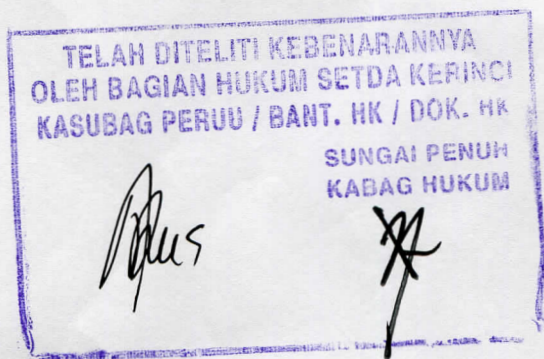 TELAH DITELITI KEBENARANNYA
OLEH BAGIAN HUKUM SETDA KERINCI
KASUBAG PERUU / BANT. HK / DOK. HK
SUNGAI PENUH
KABAG HUKUM